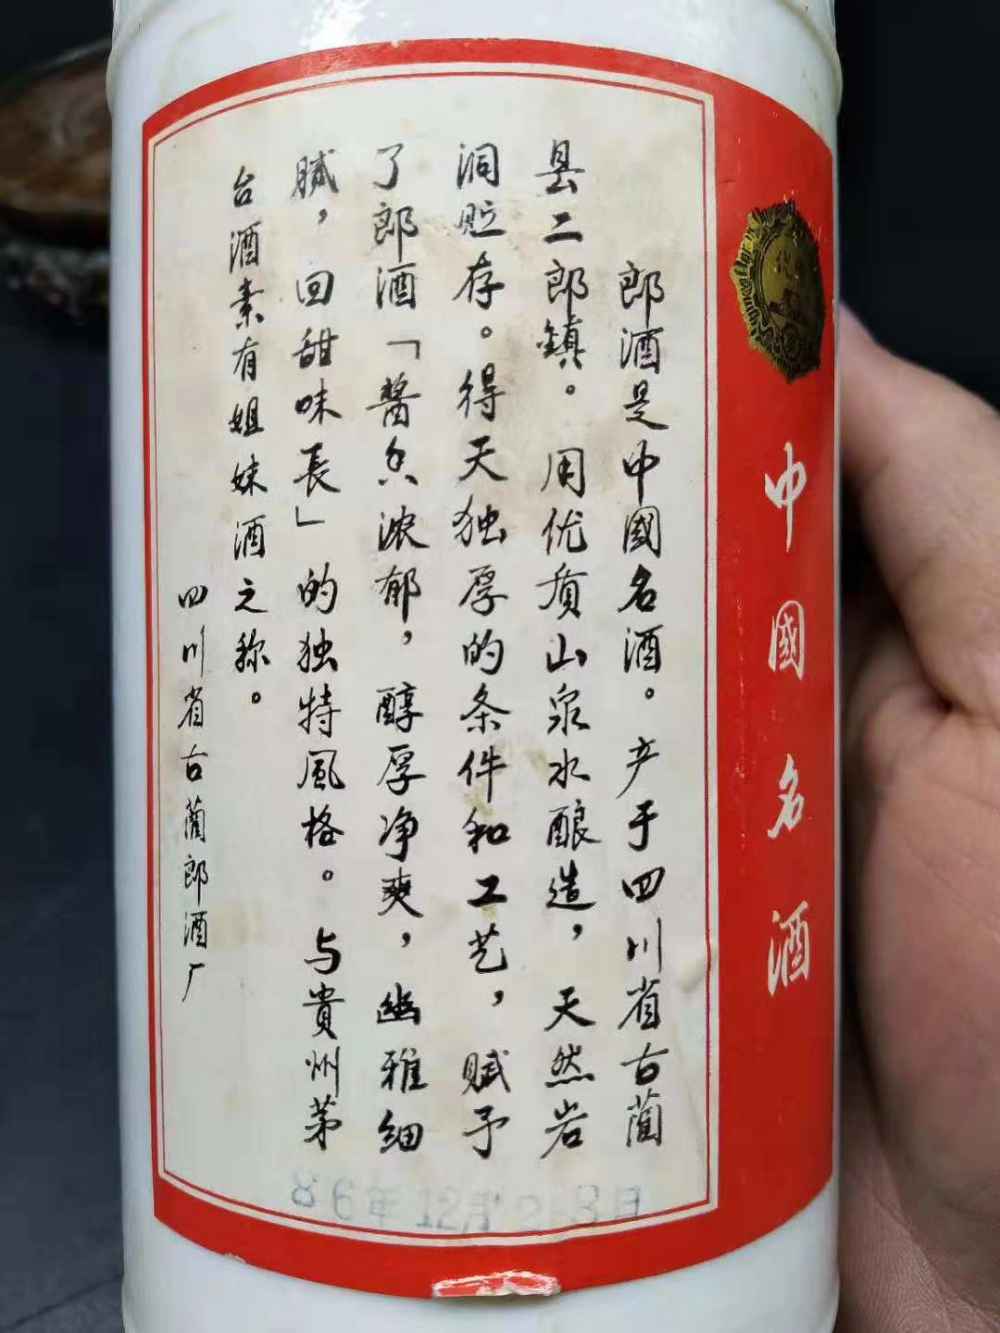 郎酒是中國名酒。产于四川省古藺
县二郎鎮。用优质山泉水酿造，天然岩
洞贮存。得天独厚的条件和工艺，赋予
了郎酒「醬香浓郁，醇厚净爽，幽雅细
腻，回甜味長」的独特風格。与貴州茅
台酒素有姐妹酒之称。
四川省古藺郎酒厂
中國名酒
86年12月23日